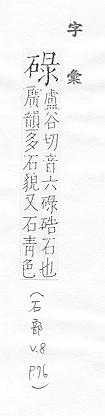 字彙
碌
盧谷切音六碌碡石也
廣韻多石貌又石靑色
(石部 v.8 p76)